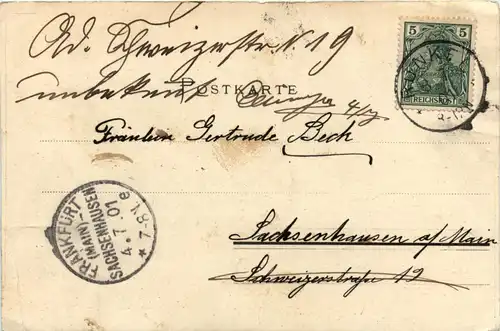 Ad. Schweizerstr. N. 19
unbekannt
POSTKARTE
4/7
5 5
REICHSPOST
Fräulein Gertrude Bech
FRANKFURT
(MAIN)-
SACHSENHAUSEN
4.7.01
* 7-8 V. e
Sachsenhausen a/Main
Schweizerstraße 19